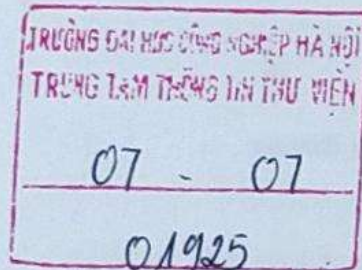 TRƯỜNG ĐẠI HỌC CÔNG NGHIỆP HÀ NỘI
TRUNG TÂM THÔNG TIN THƯ VIỆN
07 - 07
01925